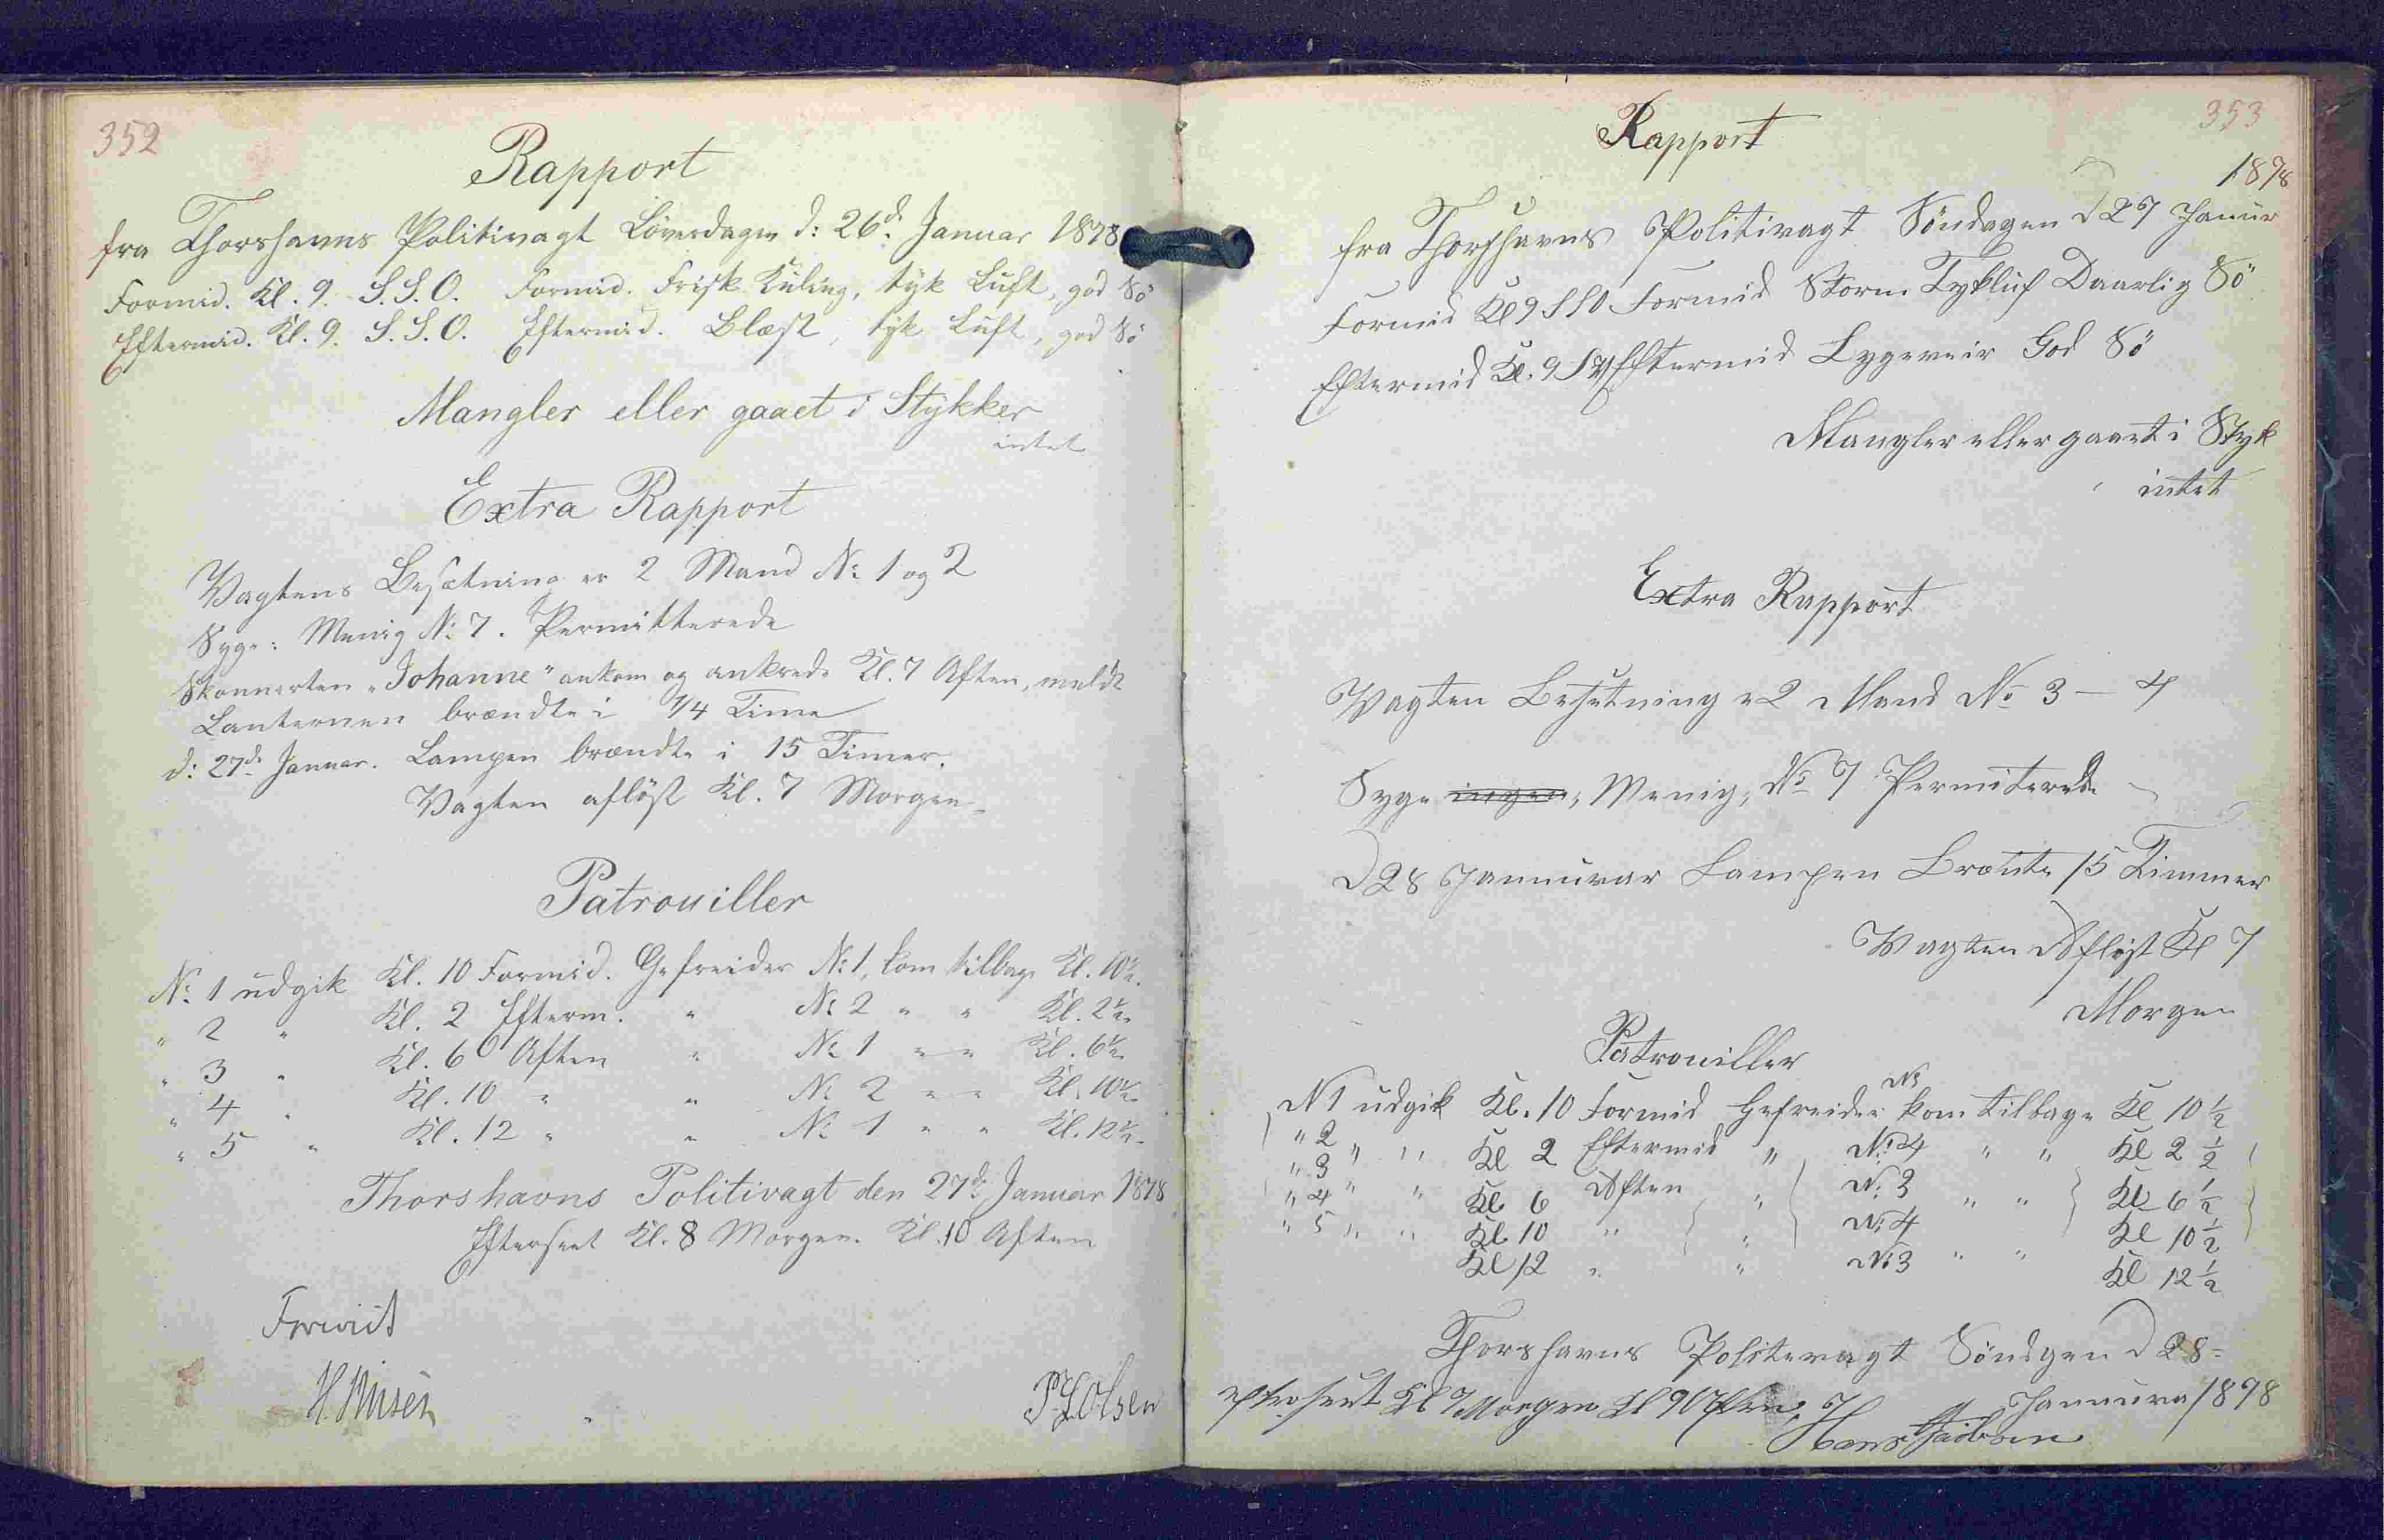 352
Rapport
fra Thorshavns Politivagt Löverdagen d: 26d. Januar 1878
Formid. Kl. 9. S.S.O. Formid. Frisk Kuling, tyk Luft, god Sö
Eftermid. Kl. 9. S.S.O. Eftermid. Blæst, tyk Luft, god Sö
Mangler eller gaaet i Stykker
intet
Extra Rapport
Vagtens Besætning er 2 Mand No 1 og 2
Syge: Menig No 7. Permitterede
Skonnerten "Johanne" ankom og ankrede Kl. 7 Aften, meldt
Lanternen brændte i 1/4 Time
d: 27de Januar. Lampen brændte i 15 Timer.
Vagten aflöst Kl. 7 Morgen
Patrouiller
No. 1 udgik Kl. 10 Formid. Gefreider No 1, kom tilbage Kl. 10½.
" 2 " Kl. 2 Efterm. " No 2 " " Kl. 2½
" 3 " Kl. 6 Aften " No 1 " " Kl. 6½
" 4 " Kl. 10 " " No 2 " " Kl. 10½
" 5 " Kl. 12 " " No 1 " " Kl. 12½
Thorshavns Politivagt den 27de Januar 1878
Efterseet Kl. 8 Morgen. Kl. 10 Aften
P. Olsen
353
Rapport
1878
fra Thorshavns Politivagt Söndagen d 27 Januar
Formid Kl 9 SSO Formid Storm Tykluf Daarlig Sö
Eftermid Kl. 9 Eftermid Lygeveir God Sö
Mangler eller gaaet i Styk
intet
Extra Rapport
Vagten Besetning 2 Mand No 3 – 4
Syge ingen, Menig, No 7 Permiterede
d 28 Januurar Lampen Brænte 15 Timmer
Vagten Afløst Kl 7
Morgen
Patrouiller
No
N 1 udgik Kl. 10 Formid Gefreider kom tilbage Kl 10 ½
" 2 " " Kl 2 Eftermid " No 4 " " Kl 2 ½
" 3 " " Kl 6 Aften " No 3 " " Kl 6 ½
" 4 " " Kl 10 " " No 4 Kl 10 ½
" 5 " " Kl 12 " " No 3 " " Kl 12 ½
Thorshavns Politevagt Söndgen d 28
Januura 1878
Kl 7 Morgen Kl 9
Hans